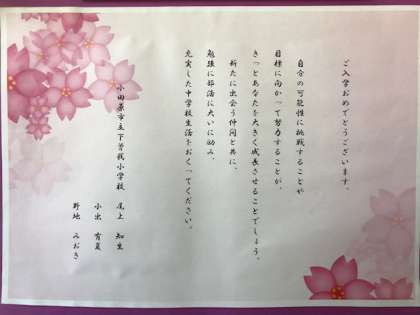 ご入学おめでとうございます。
自分の可能性に挑戦することや
目標に向かって努力することが、
きっとあなたを大きく成長させることでしょう。
新たに出会う仲間と共に、
勉強に部活に大いに励み、
充実した中学校生活をおくってください。
小田原市立下曽我小学校 尾上 知生
小出 有夏
野地 みおき